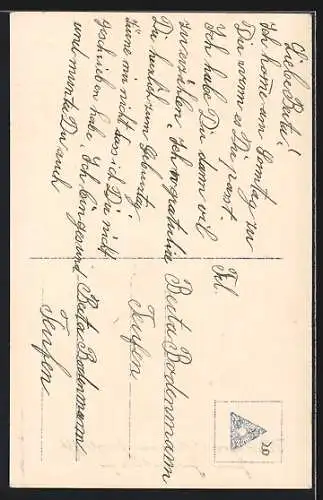 Liebe Berta!
Ich komme am Sonntag zu
Dir wenn es Dir passt.
Ich habe Dir dann viel
zu erzählen. Ich gratuliere
Dir herzlich zum Geburtstag.
Zürne mir nicht dass ich Dir nicht
geschrieben habe. Ich bin gesund
und munter Du auch
Frl.
Berta Bodenmann
Teufen
Berta Bodenmann
Teufen
20